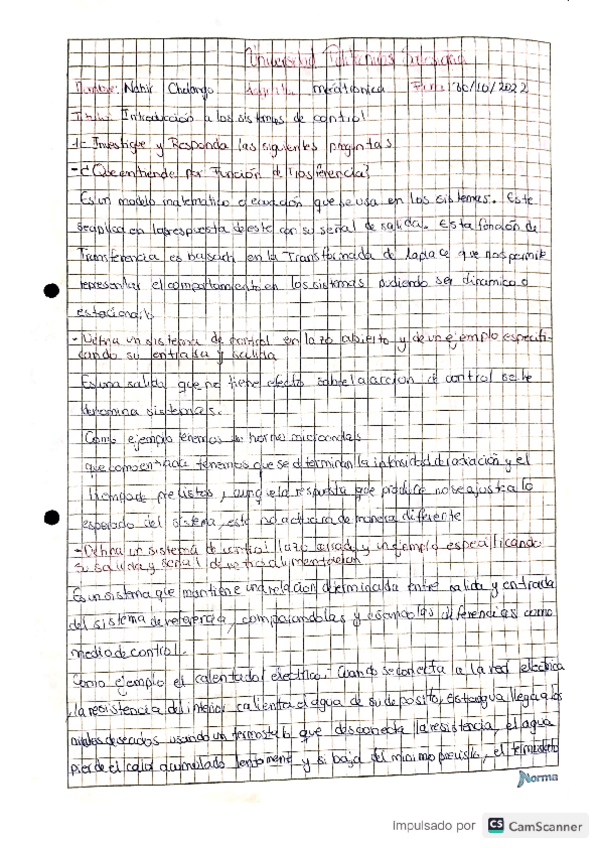 Universidad Politecnica Salesiana
Nombre: Nahir Chalango mecatronica Fecha: 30/10/2022
Tema: Introducción a los sistemas de control
1- Investigue y Responda las siguientes preguntas
-¿Que entiende por Función de Trasferencia?
Es un modelo matematico o ecuación que se usa en los sistemas. Este
se aplica en la respuesta de este con su señal de salida. Esta función de
Transferencia es basada en la Transformada de laplace que nos permite
representar el comportamiento en los sistemas pudiendo ser dinamico o
estacionario
-Defina un sistema de control en lazo abierto y de un ejemplo especifi-
cando su entrada y salida
Es una salida que no tiene efecto sobre la accion de control se le
denomina sistemas.
Como ejemplo tenemos horno microondas
que como entrada tenemos que se determinan la intensidad de radiación y el
tiempo de previstos, aunque la respuesta que produce no se ajusta a lo
esperado del sistema, este no actuara de manera diferente
-Defina un sistema de control lazo cerrado y un ejemplo especificando
su salida y señal de retroalimentación
Es un sistema que mantiene una relacion determinada entre salida y entrada
del sistema de referencia, comparandolas y usando las diferencias como
media de control.
Como ejemplo el calentador electrico.- Cuando se conecta a la red electrica
, la resistencia del interior calienta el agua de su deposito, esta agua llega a los
niveles deseados usando un termostato que desconecta la resistencia, el agua
pierde el calor acumulado lentamente y si baja del minimo previsto, el termostato
Norma
Impulsado por CS CamScanner